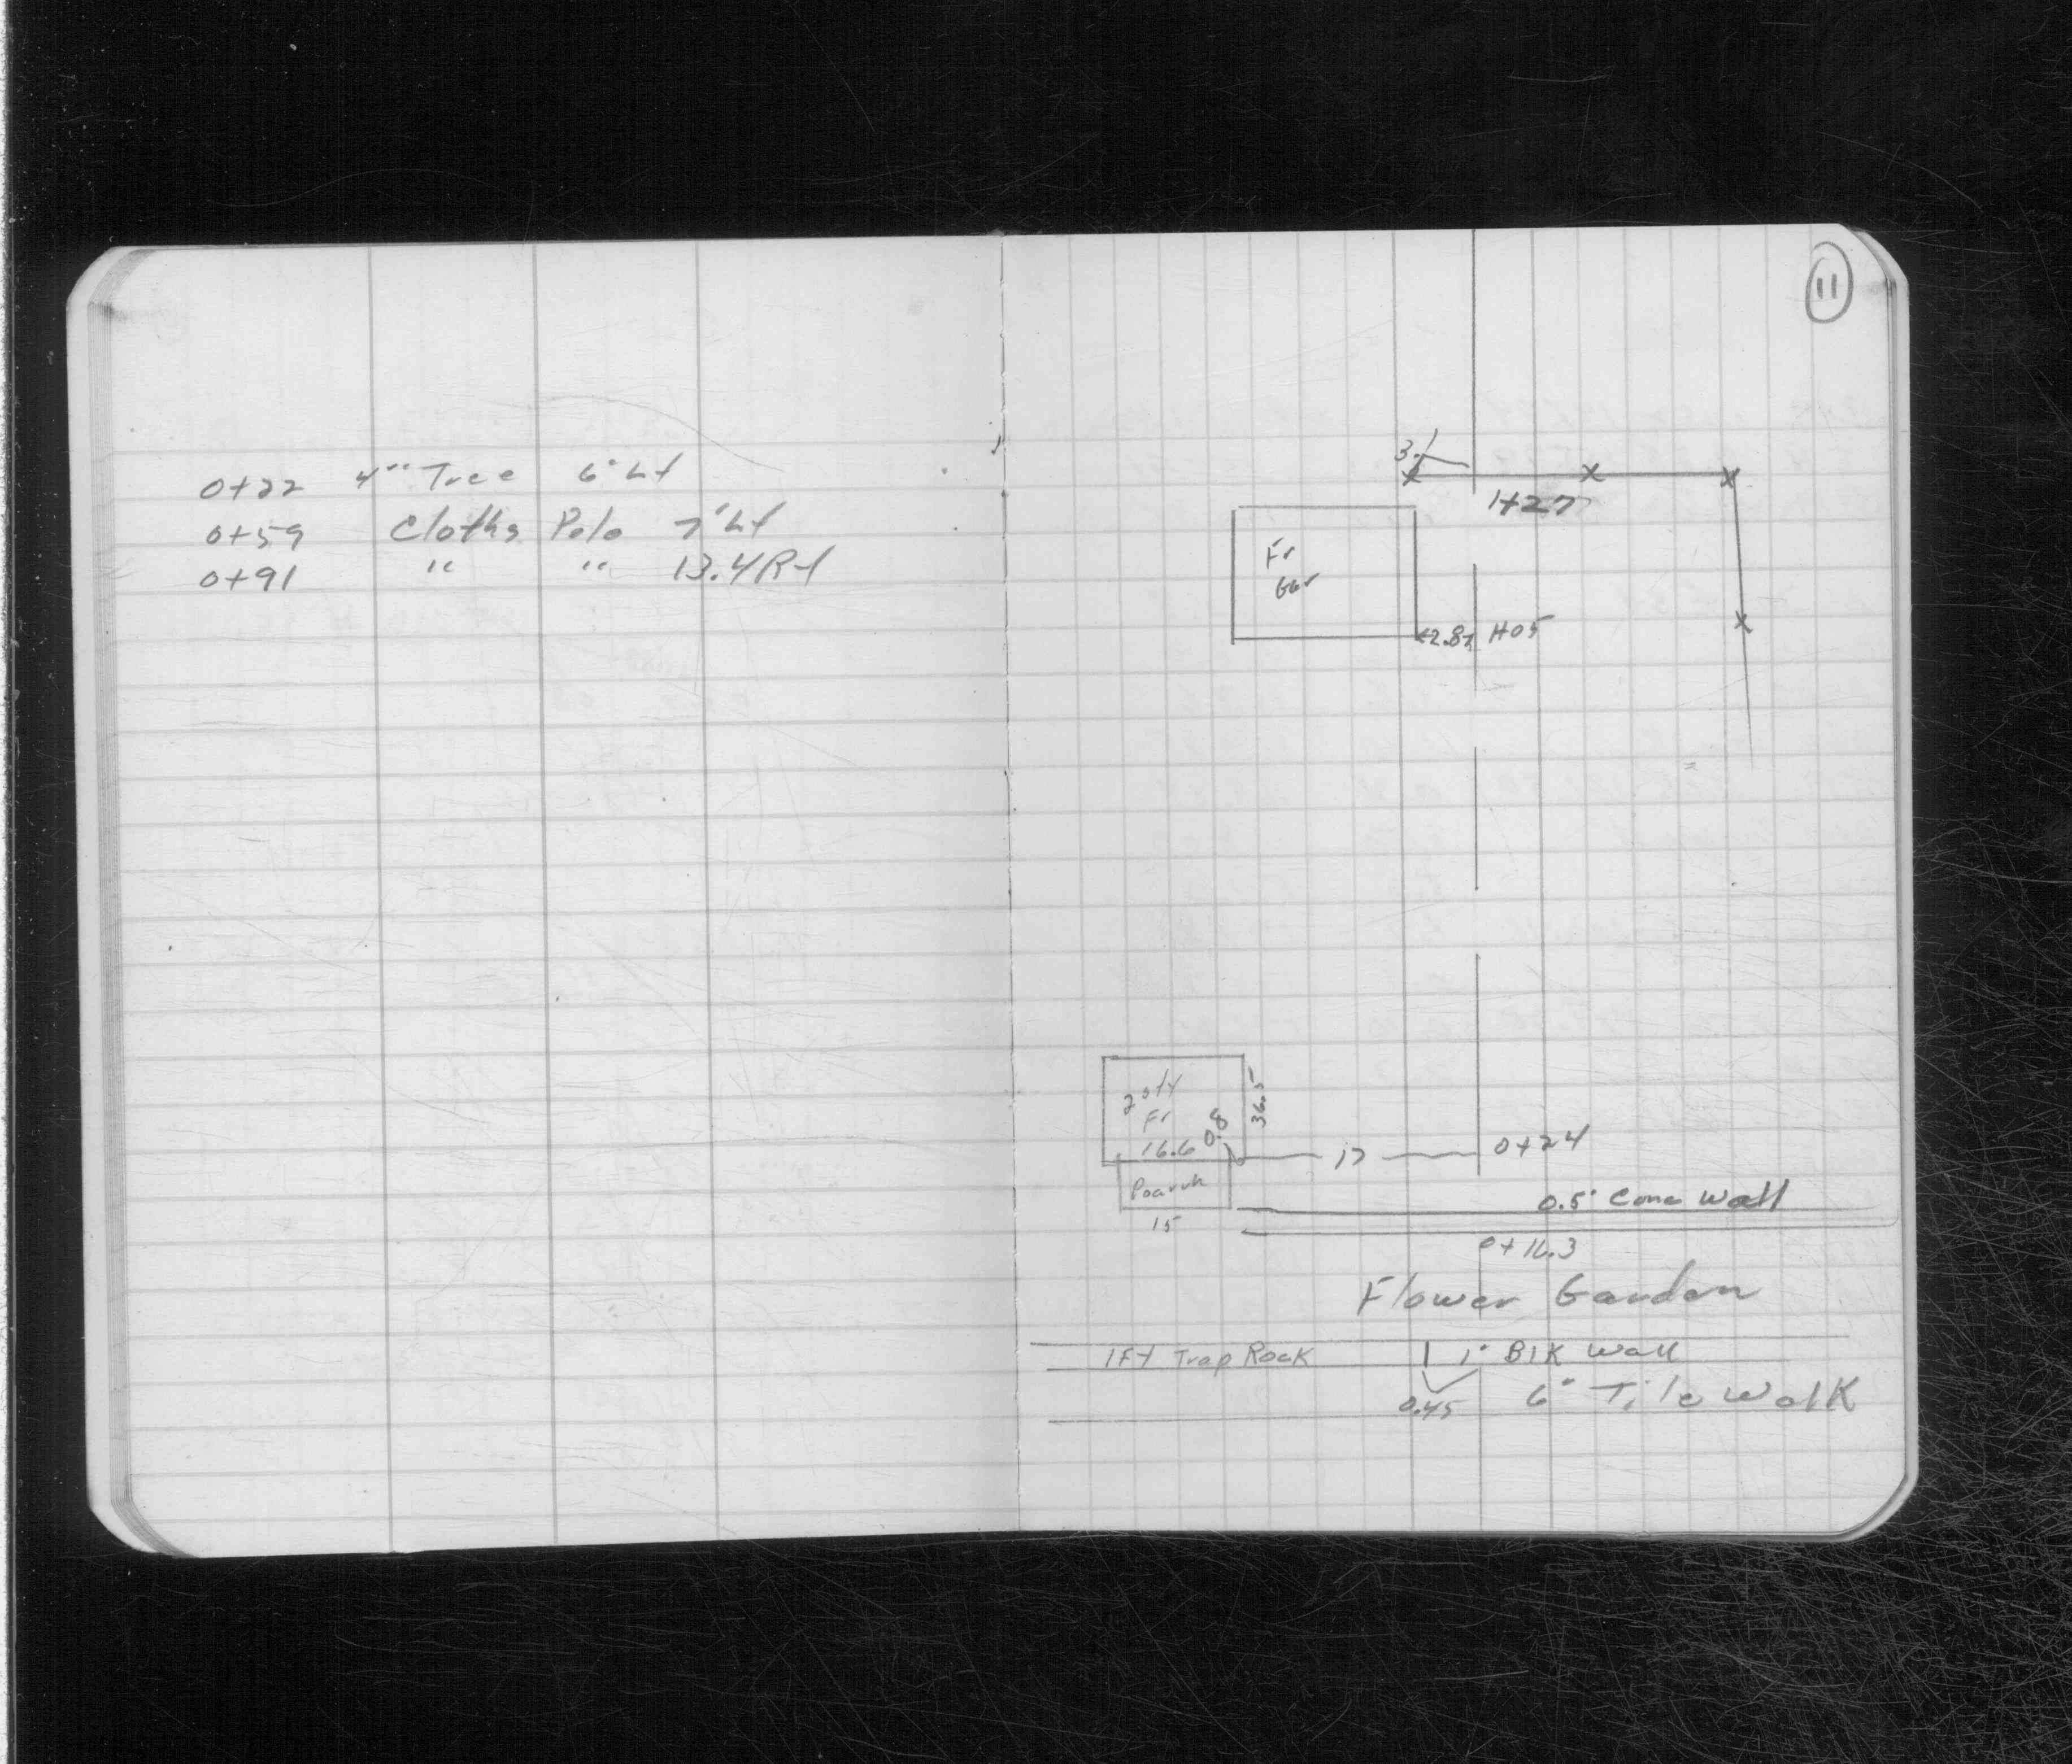 0+22 4" Tree 6' Lt
0+59 Cloths Pole 7' Lt
0+91 " " 13.4 Rt
11
3.1
1+27
Fr
Gar
2.8
1+05
2 sty
Fr
16.6
0.8
36.5
17
0+24
Poarch
15
0.5' Conc Wall
0+16.3
Flower Garden
1 Ft Trap Rock
1' Blk Wall
0.45
6" Tile Walk